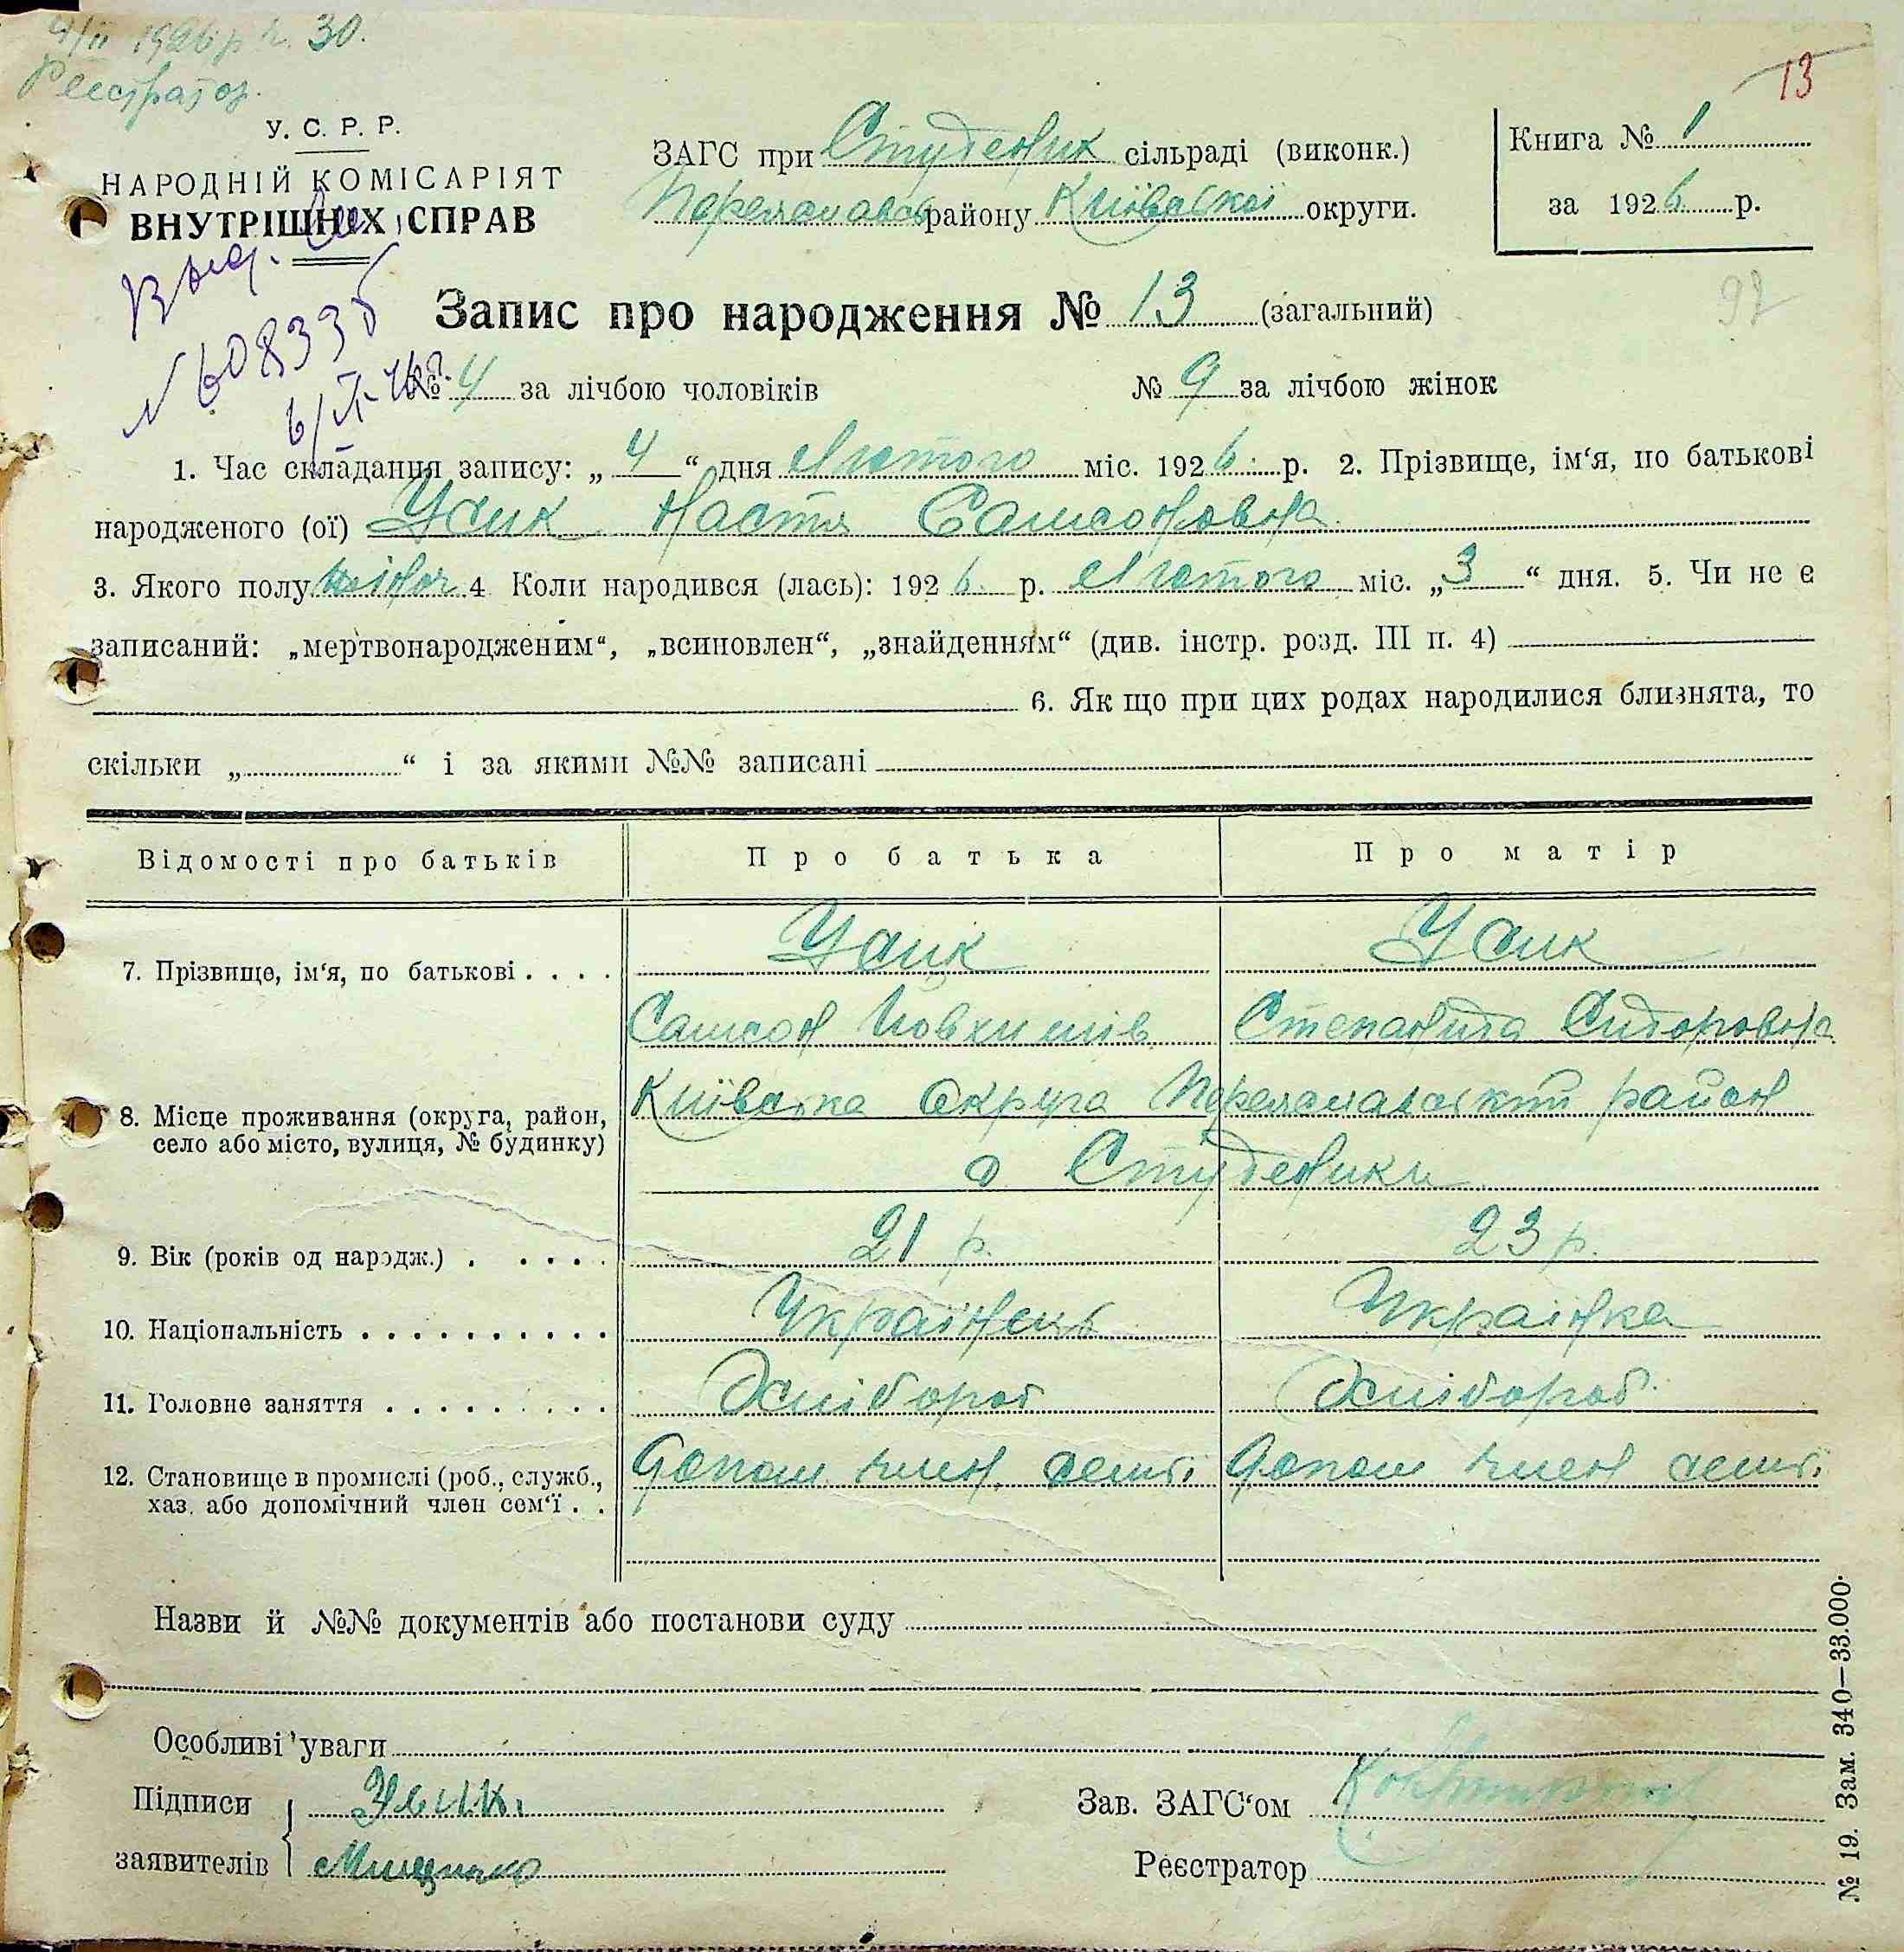 4/II 1926 р ч. 30.
Реєстратор.
13
У. С. Р. Р.
НАРОДНІЙ КОМІСАРІЯТ
ВНУТРІШНІХ СПРАВ
ЗАГС при Студеник сільраді (виконк.)
Переяславськ району Київської округи.
Книга № 1
за 1926 р.
92
№ 608335
Запис про народження № 13 (загальний)
№ 4 за лічбою чоловіків № 9 за лічбою жінок
1. Час складання запису: „ 4 “ дня Лютого міс. 1926. р. 2. Прізвище, ім‘я, по батькові
народженого (ої) Усик Настя Самсоновна
3. Якого полу жіноч 4 Коли народився (лась): 1926. р. Лютого міс. „ 3 “ дня. 5. Чи не є
записаний: „мертвонародженим“, „всиновлен“, „знайденням“ (див. інстр. розд. III п. 4)
6. Як що при цих родах народилися близнята, то
скільки „ “ і за якими №№ записані
Відомості про батьків Про батька Про матір
7. Прізвище, ім‘я, по батькові . . . . Усик Усик
Самсон Йовхимів Степанида Сидоровна
8. Місце проживання (округа, район, Київська Округа Переяславський район
село або місто, вулиця, № будинку) с Студеники
9. Вік (років од народж.) . . . . . 21 р. 23 р.
10. Національність . . . . . . . . . . Українець Українка
11. Головне заняття . . . . . . . . . Хлібороб Хлібороб.
12. Становище в промислі (роб., служб., Допом член. семі Допом член семі.
хаз. або допомічний член сем‘ї . .
Назви й №№ документів або постанови суду
Особливі уваги
Підписи Усик.
заявителів Мищенко
Зав. ЗАГС‘ом
Реєстратор
№ 19. Зам. 340—33.000.